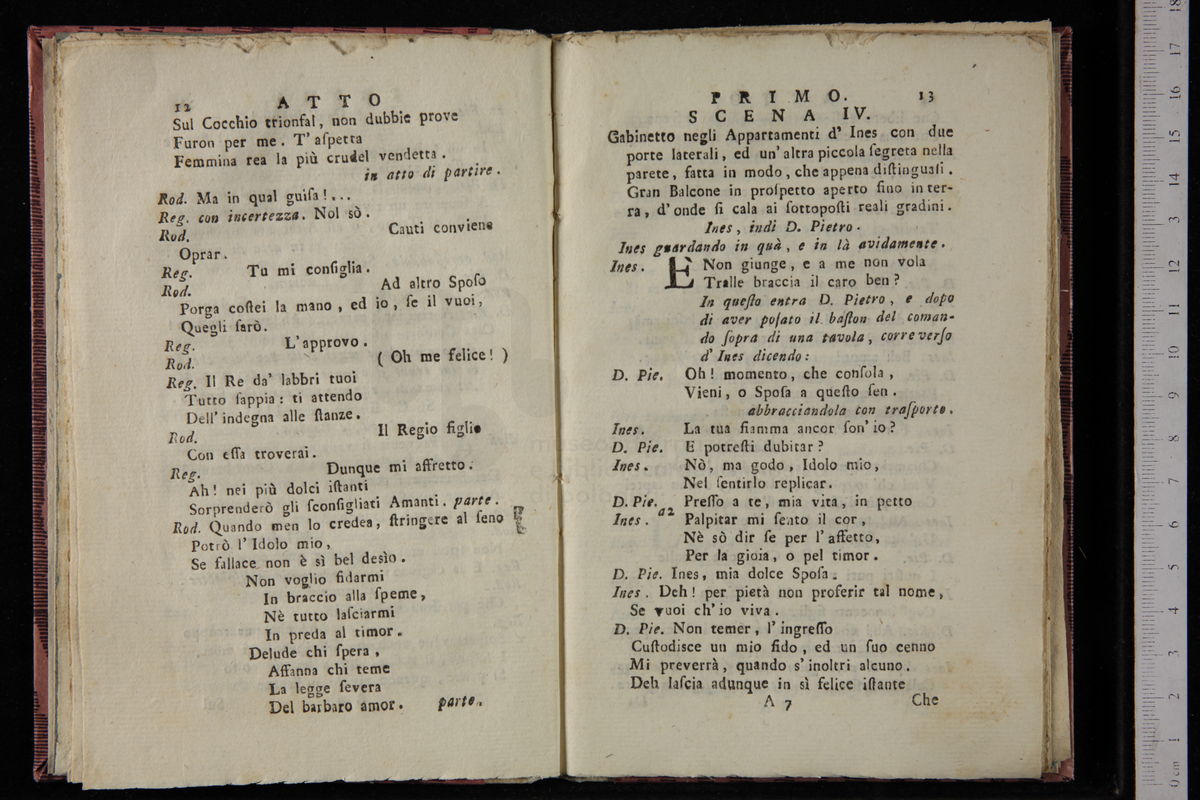 12 ATTO
Sul Cocchio trionfal, non dubbie prove
Furon per me. T' aſpetta
Femmina rea la più crudel vendetta.
in atto di partire.
Rod. Ma in qual guiſa!...
Reg. con incertezza. Nol sò.
Rod. Cauti conviene
Oprar.
Reg. Tu mi conſiglia.
Rod. Ad altro Spoſo
Porga coſtei la mano, ed io, ſe il vuoi,
Quegli ſarò.
Reg. L'approvo.
Rod. ( Oh me felice! )
Reg. Il Re da' labbri tuoi
Tutto ſappia: ti attendo
Dell' indegna alle ſtanze.
Rod. Il Regio figlio
Con eſſa troverai.
Reg. Dunque mi affretto.
Ah! nei più dolci iſtanti
Sorprenderò gli ſconſigliati Amanti. parte.
Rod. Quando men lo credea, ſtringere al ſeno
Potrò l' Idolo mio,
Se fallace non è sì bel desìo.
Non voglio fidarmi
In braccio alla ſpeme,
Nè tutto laſciarmi
In preda al timor.
Delude chi ſpera,
Affanna chi teme
La legge ſevera
Del barbaro amor. parte.
PRIMO. 13
SCENA IV.
Gabinetto negli Appartamenti d' Ines con due
porte laterali, ed un' altra piccola ſegreta nella
parete, fatta in modo, che appena diſtinguaſi.
Gran Balcone in proſpetto aperto fino in ter-
ra, d' onde ſi cala ai ſottopoſti reali gradini.
Ines, indi D. Pietro.
Ines guardando in quà, e in là avidamente.
Ines. È Non giunge, e a me non vola
Tralle braccia il caro ben?
In queſto entra D. Pietro, e dopo
di aver poſato il baſton del coman-
do ſopra di una tavola, corre verſo
d' Ines dicendo:
D. Pie. Oh! momento, che conſola,
Vieni, o Spoſa a queſto ſen.
abbracciandola con traſporto.
Ines. La tua fiamma ancor ſon' io?
D. Pie. E potreſti dubitar?
Ines. Nò, ma godo, Idolo mio,
Nel ſentirlo replicar.
D. Pie. Preſſo a te, mia vita, in petto
Ines. a2 Palpitar mi ſento il cor,
Nè sò dir ſe per l' affetto,
Per la gioia, o pel timor.
D. Pie. Ines, mia dolce Spoſa.
Ines. Deh! per pietà non proferir tal nome,
Se vuoi ch' io viva.
D. Pie. Non temer, l' ingreſſo
Cuſtodisce un mio fido, ed un ſuo cenno
Mi preverrà, quando s' inoltri alcuno.
Deh laſcia adunque in sì felice iſtante
A 7 Che